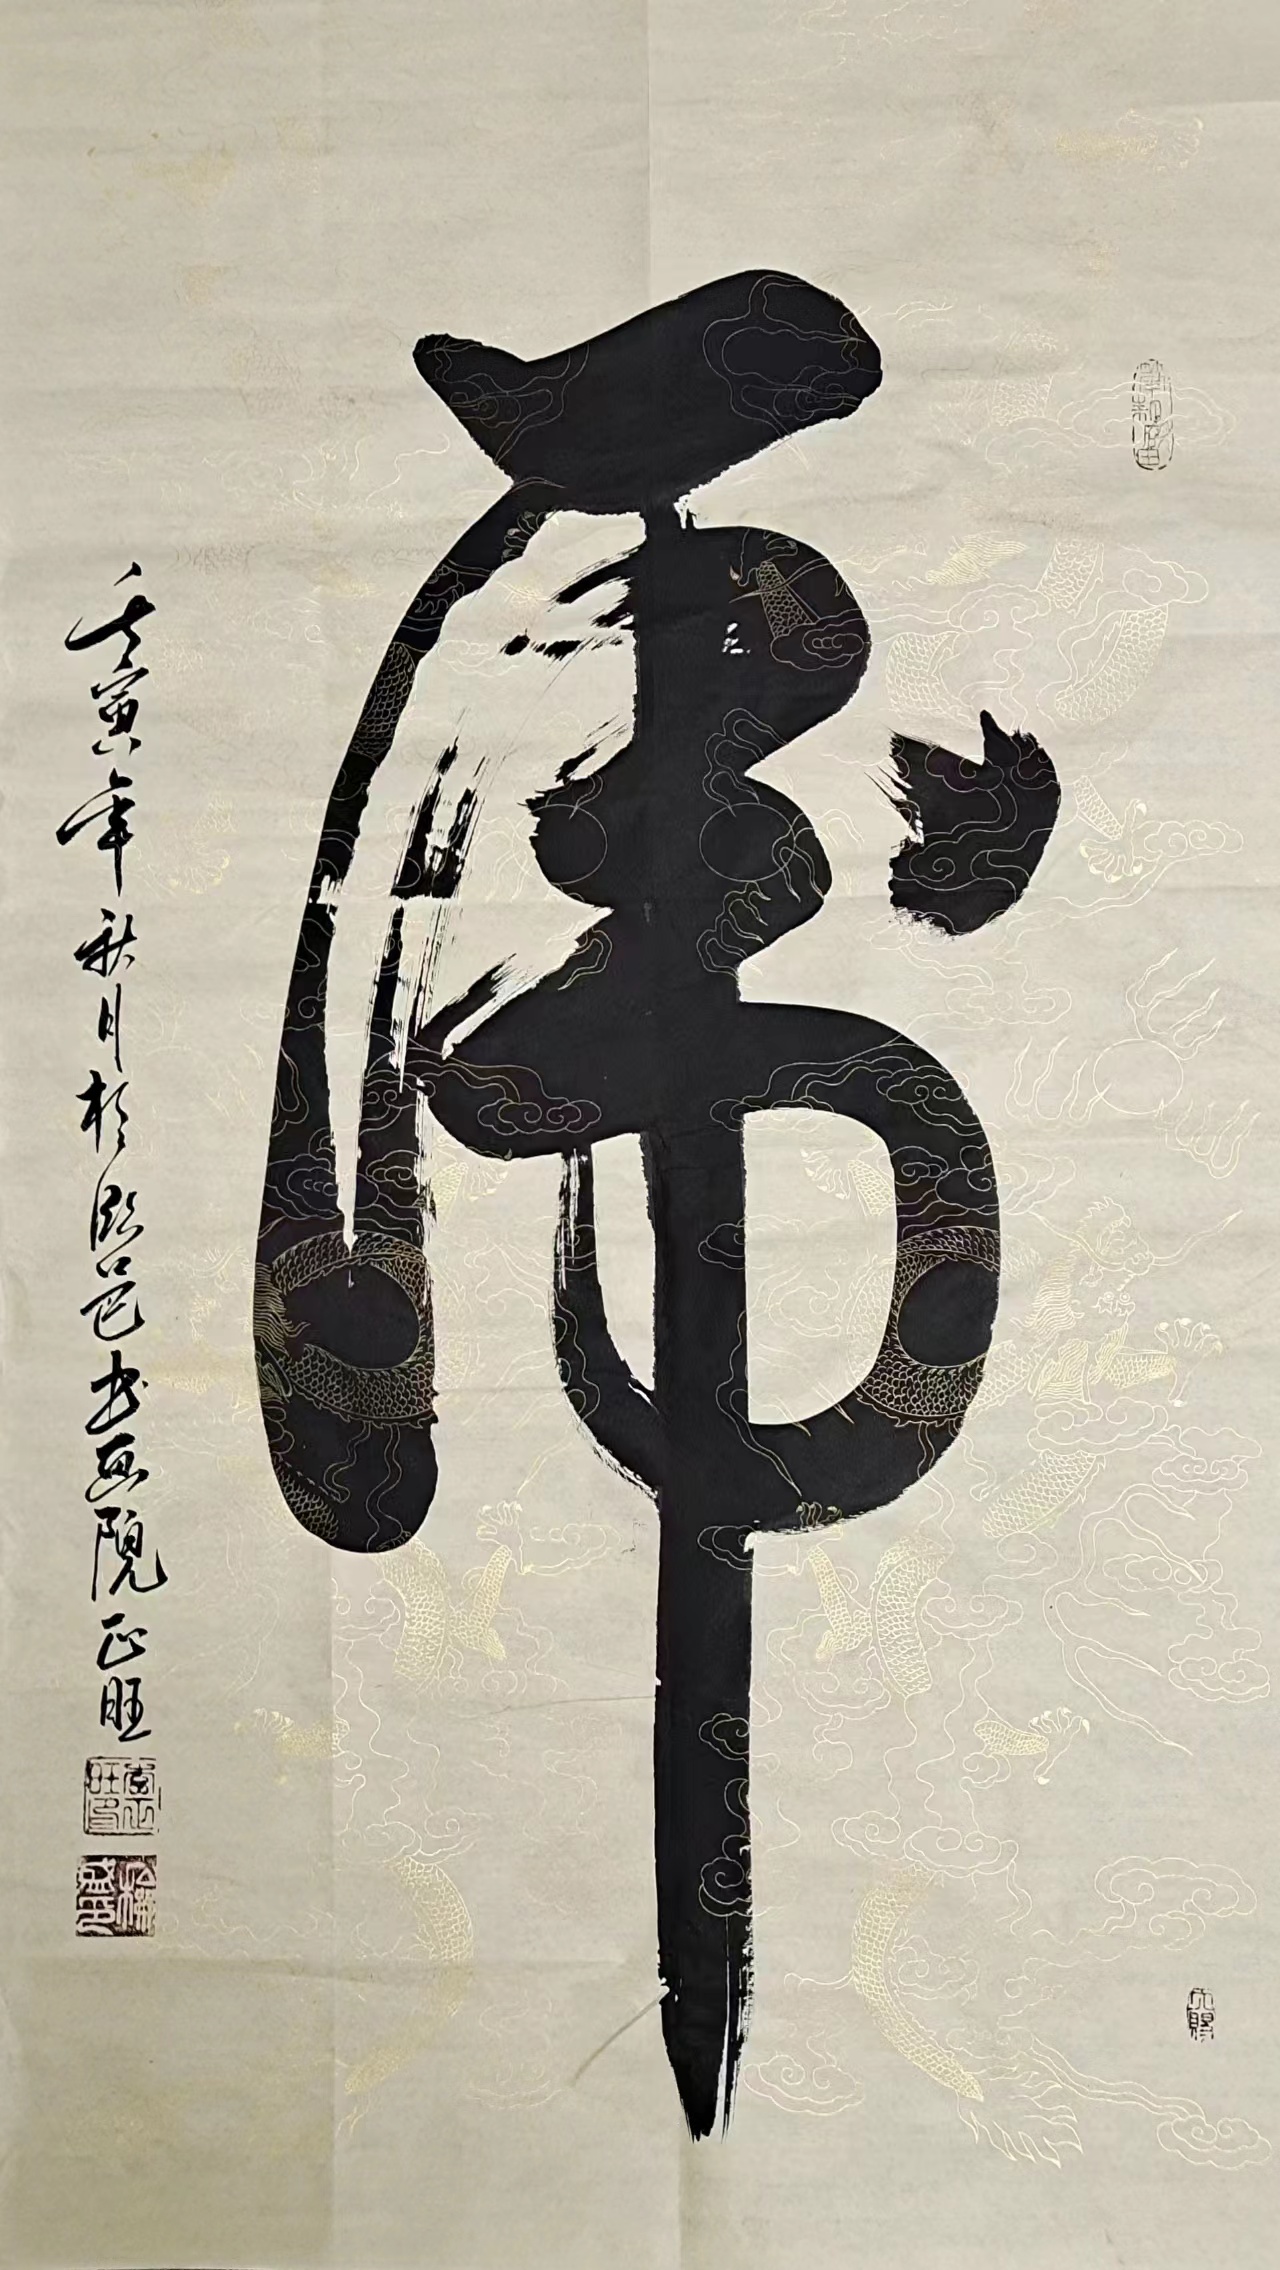 虎
壬寅年秋月於临邑书画院正旺